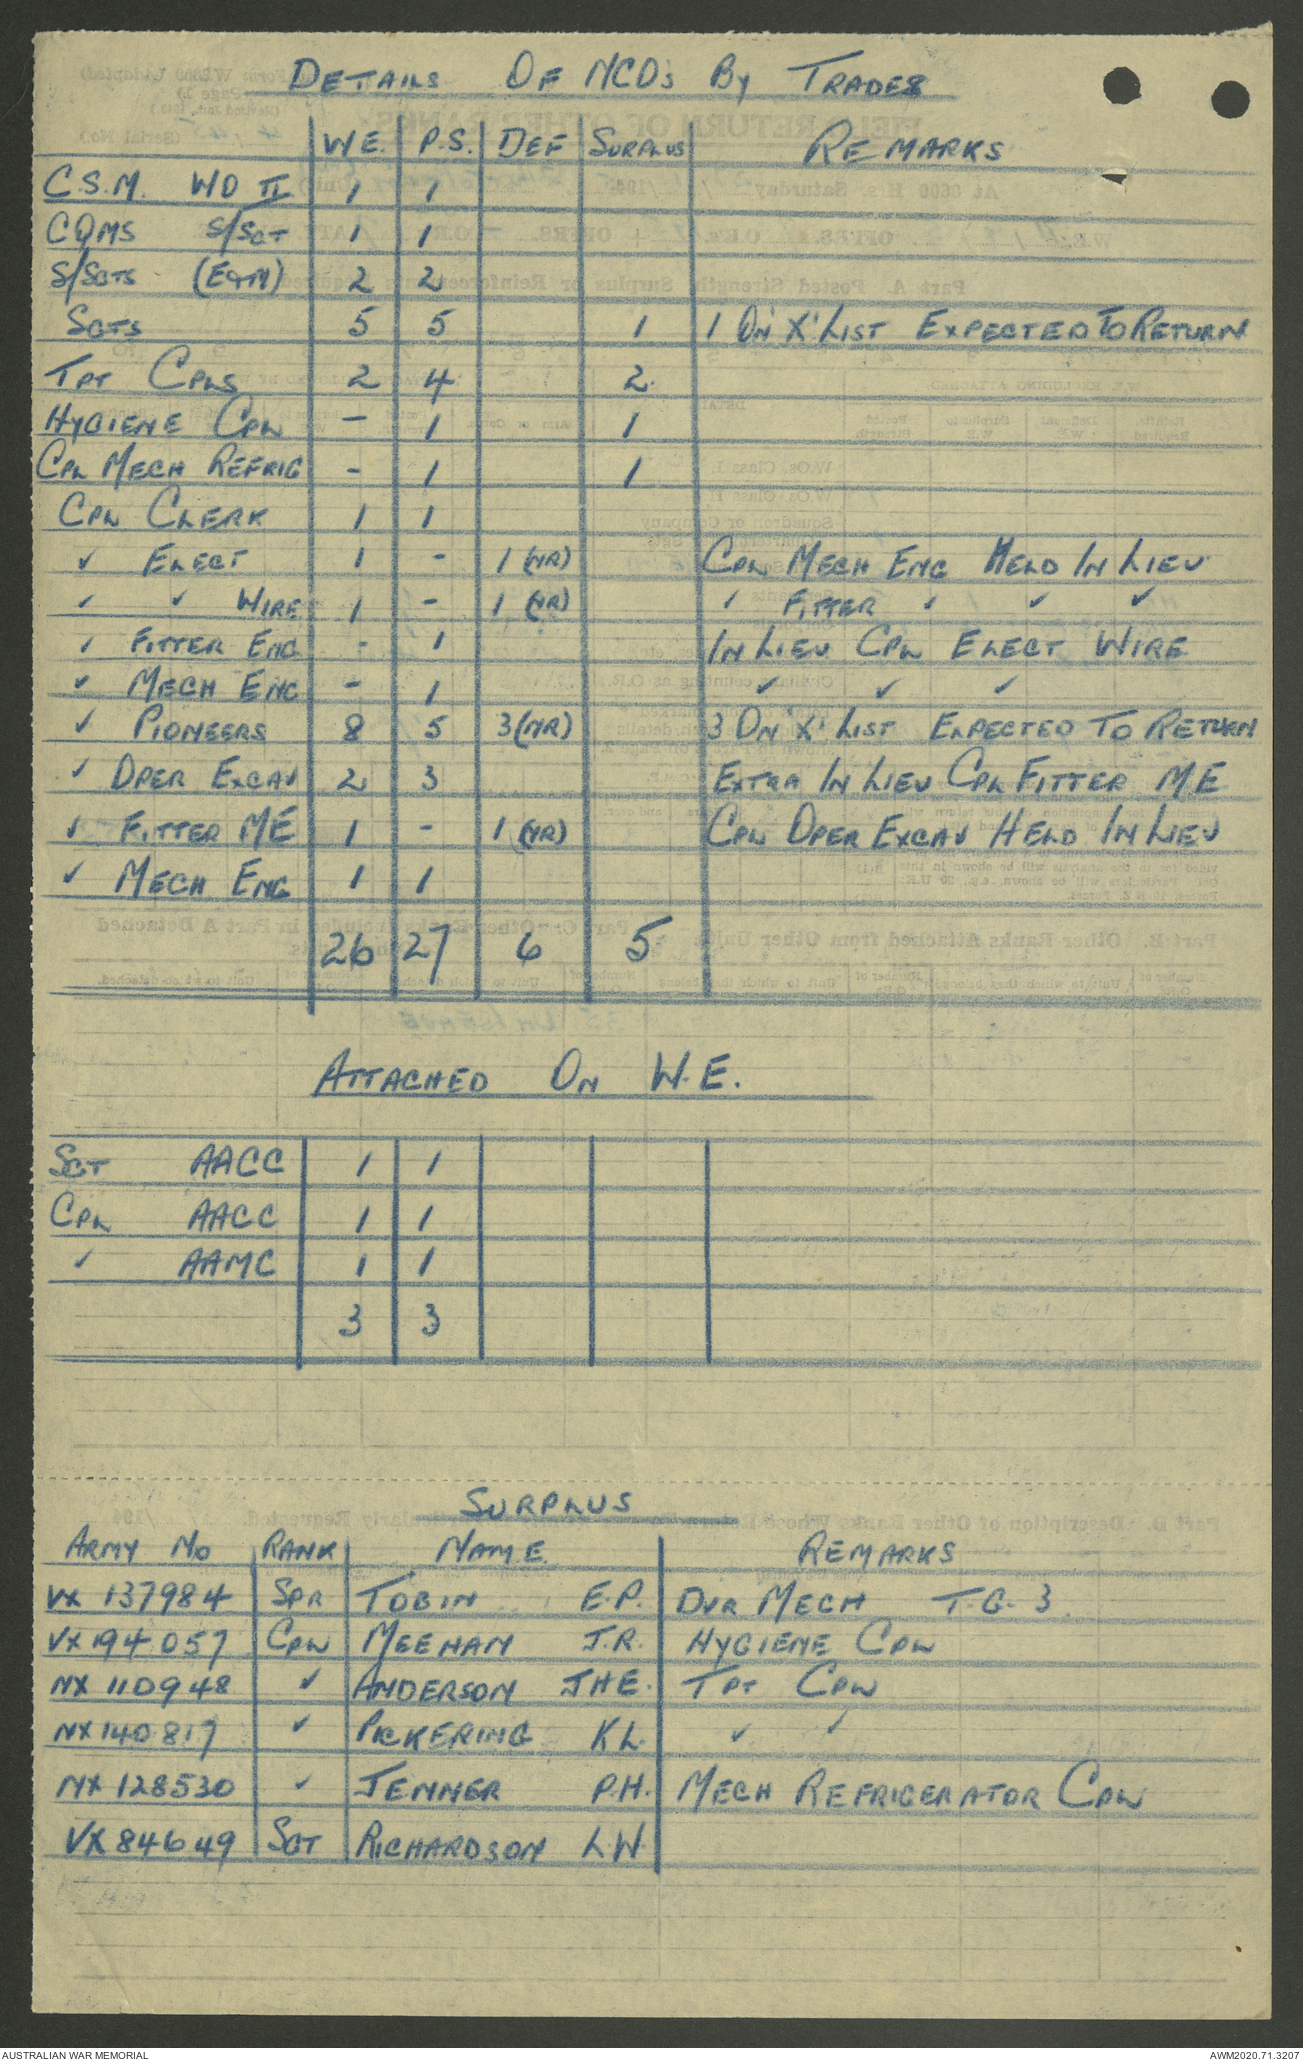 DETAILS OF NCO's By TRADES
W.E. P.S. DEF SURPLUS REMARKS
C.S.M. WO II 1 1
CQMS S/SGT 1 1
S/SGTS (EQTN) 2 2
SGTS 5 5 1 1 ON "X" LIST EXPECTED TO RETURN
TPT CPLS 2 4 2
HYGIENE CPL - 1 1
CPL MECH REFRIG - 1 1
CPL CLERK 1 1
✓ ELECT 1 - 1 (NR) CPL MECH ENG HELD IN LIEU
✓ ✓ WIRE 1 - 1 (NR) ✓ FITTER ✓ ✓ ✓
✓ FITTER ENG - 1 IN LIEU CPL ELECT WIRE
✓ MECH ENG - 1 ✓ ✓ ✓
✓ PIONEERS 8 5 3 (NR) 3 ON "X" LIST EXPECTED TO RETURN
✓ OPER EXCAV 2 3 EXTRA IN LIEU CPL FITTER M.E
✓ FITTER ME 1 - 1 (NR) CPL OPER EXCAV HELD IN LIEU
✓ MECH ENG 1 1
26 27 6 5
ATTACHED ON W.E.
SGT AACC 1 1
CPL AACC 1 1
✓ AAMC 1 1
3 3
SURPLUS
ARMY No RANK NAME REMARKS
VX 137984 SPR TOBIN E.P. DVR MECH T.G. 3.
VX 194057 CPL MEEHAN J.R. HYGIENE CPL
NX 110948 ✓ ANDERSON JHE. TPT CPL
NX 140817 ✓ PICKERING KL. ✓ ✓
NX 128530 ✓ JENNER P.H. MECH REFRIGERATOR CPL
VX 84649 SGT RICHARDSON L.W.
AUSTRALIAN WAR MEMORIAL AWM2020.71.3207